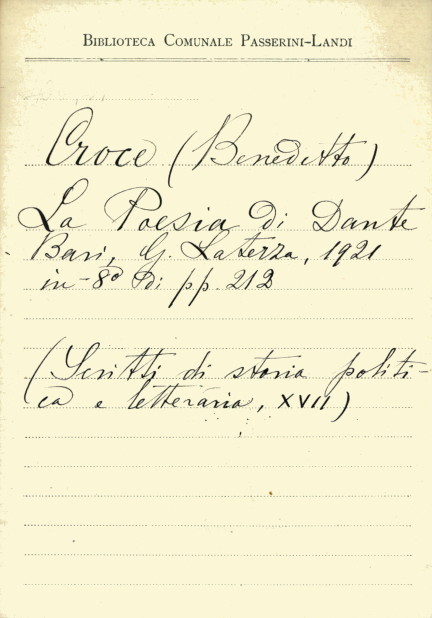 BIBLIOTECA COMUNALE PASSERINI-LANDI
Croce (Benedetto)
La Poesia di Dante
Bari, G. Laterza, 1921
in-8º di pp. 212
(Scritti di storia politi-
ca e letteraria, XVII)